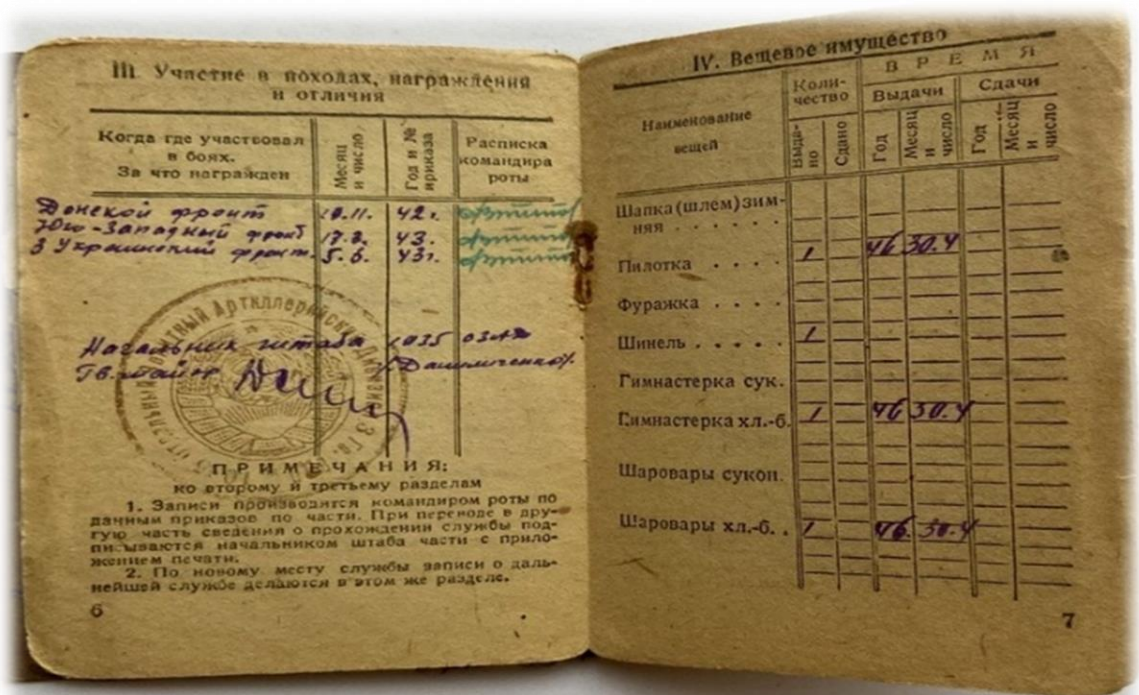 III. Участие в походах, награждения
и отличия
Когда где участвовал
в боях.
За что награжден
Месяц
и число
Год и №
приказа
Расписка
командира
роты
Донской фронт 19.11. 42г.
Юго-Западный фронт 17.2. 43.
3 Украинский фронт. 5.6. 43г.
Начальник штаба 1035 ОЗАД
Гв. майор
ПРИМЕЧАНИЯ:
ко второму и третьему разделам
1. Записи производятся командиром роты по
данным приказов по части. При переводе в дру-
гую часть сведения о прохождении службы под-
писываются начальником штаба части с прило-
жением печати.
2. По новому месту службы записи о даль-
нейшей службе делаются в этом же разделе.
6
IV. Вещевое имущество
Наименование
вещей
Коли-
чество
ВРЕМЯ
Выдачи
Сдачи
Выда-
но
Сдано
Год
Месяц
и
число
Год
Месяц
и
число
Шапка (шлем) зим-
няя . . . . .
Пилотка . . . . 1 46 30.4
Фуражка . . . .
Шинель . . . . . 1
Гимнастерка сук.
Гимнастерка хл.-б. 1 46 30.4
Шаровары сукон.
Шаровары хл.-б. . 1 46. 30.4
7